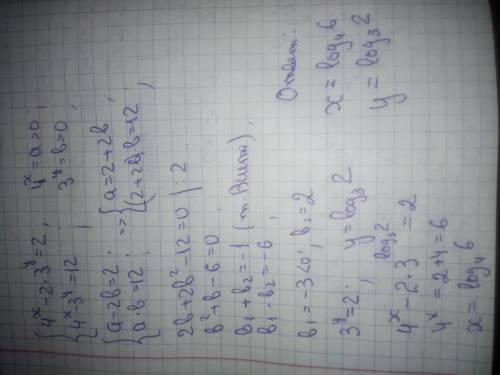 {4ˣ - 2·3ʸ = 2, 4ˣ = a > 0;
{4ˣ·3ʸ = 12 ; 3ʸ = b > 0;
{a - 2b = 2; => {a = 2 + 2b ;
{a·b = 12; {(2 + 2b)b = 12 ;
2b + 2b² - 12 = 0 | : 2
b² + b - 6 = 0;
b₁ + b₂ = -1 (т. Виета),
b₁ · b₂ = -6 ;
b₁ = -3 < 0; b₂ = 2
3ʸ = 2; y = log₃ 2
4ˣ - 2·3^(log₃2) = 2
4ˣ = 2 + 4 = 6
x = log₄ 6
Ответ:
x = log₄ 6
y = log₃ 2